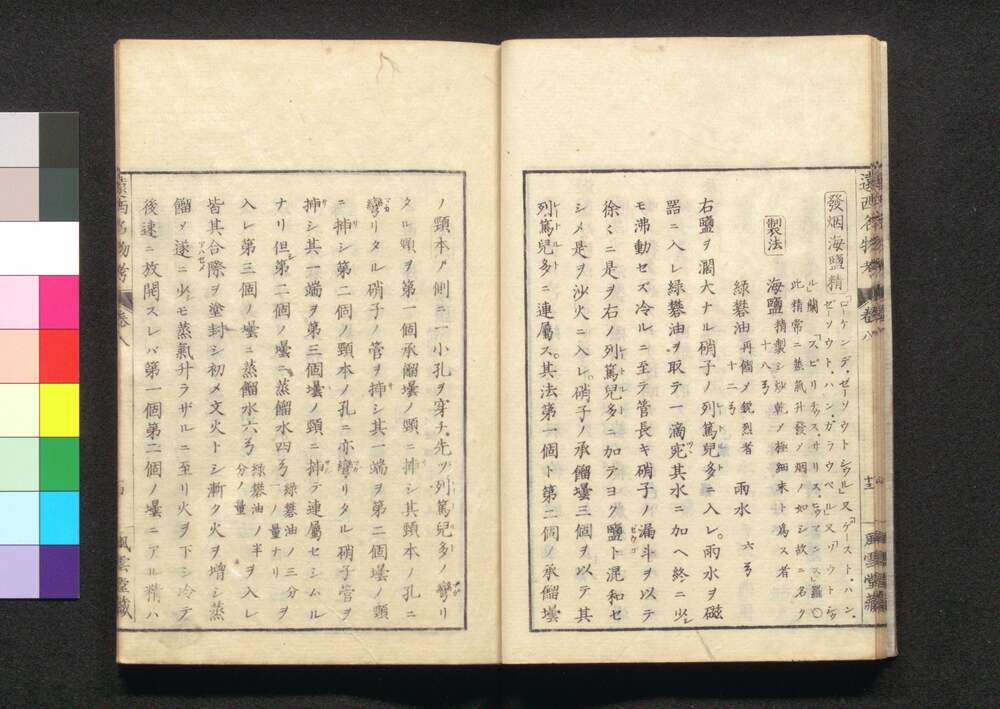 發烟海鹽精
「ローケンデ、ゼーソウトシウル」又「ゲースト、ハン、
ゼーソウト、ハン、ガラウベル」又
此精常ニ蒸氣升發ノ烟ノ如シ故ニ名ク
製法
海鹽 精製シ炒乾ノ極細末ト爲ス者
十八ゟ
綠礬油 再餾メ銳烈者
十二ゟ
雨水 六ゟ
右鹽ヲ濶大ナル硝子ノ列篤兒多ニ入レ。雨水ヲ磁
器ニ入レ綠礬油ヲ取テ一滴宛其水ニ加ヘ終ニ少
モ沸動セズ冷ルニ至テ管長キ硝子ノ漏斗ヲ以テ
徐〻ニ是ヲ右ノ列篤兒多ニ加テヨク鹽ト混和セ
シメ是ヲ沙火ニ入レ。硝子ノ承餾壜三個ヲ以テ其
列篤兒多ニ連屬ス。其法第一個ト第二個ノ承餾壜
遠西名物考 卷八
十三
風雲堂藏
ノ頸本ノ側ニ一小孔ヲ穿チ。先ツ列篤兒多ノ彎リ
タル頸ヲ第一個承餾壜ノ頸ニ挿シ其頸本ノ孔ニ
彎リタル硝子ノ管ヲ挿シ其一端ヲ第二個壜ノ頸
ニ挿シ第二個ノ頸本ノ孔ニ亦彎リタル硝子管ヲ
挿シ其一端ヲ第三個壜ノ頸ニ挿テ連屬セシムル
ナリ但第二個ノ壜ニ蒸餾水四ゟ 綠礬油ノ三分
ノ量ナリ ヲ
入レ第三個ノ壜ニ蒸餾水六ゟ 綠礬油ノ半
分ノ量 ヲ入レ
皆其合際ヲ塗封シ初メ文火トシ漸ク火ヲ增シ蒸
餾メ遂ニ少モ蒸氣升ラザルニ至リ火ヲ下シ冷テ
後速ニ放開スレバ第一個第二個ノ壜ニアル精ハ
遠西名物考 卷八
風雲堂藏